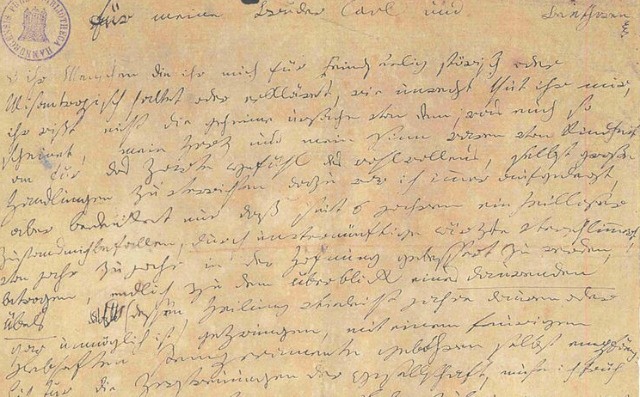 für meine Brüder Carl und Beethowen
O ihr Menschen die ihr mich für Feindseelig störisch oder
Misantropisch haltet oder erkläret, wie unrecht thut ihr mir,
ihr wißt nicht die geheime urßache von dem, was euch so
scheinet, mein Herz und mein Sinn waren von Kindheit
an für das Zarte Gefühl des wohlwollens, selbst große
Handlungen zu verrichten dazu war ich immer aufgelegt
aber bedenket nur daß seit 6 jahren ein heilloser
Zustand mich befallen, durch unvernünftige ärzte verschlimmert,
von jahr zu jahr in der Hofnung gebessert zu werden,
betrogen, endlich zu dem überblick eines daurenden
Übels dessen Heilung vieleicht jahre dauren oder
gar unmöglich ist gezwungen, mit einem feurigen
Lebhaften Temperamente gebohren selbst
für die Zerstreuungen der Gesellschaft, muste ich früh